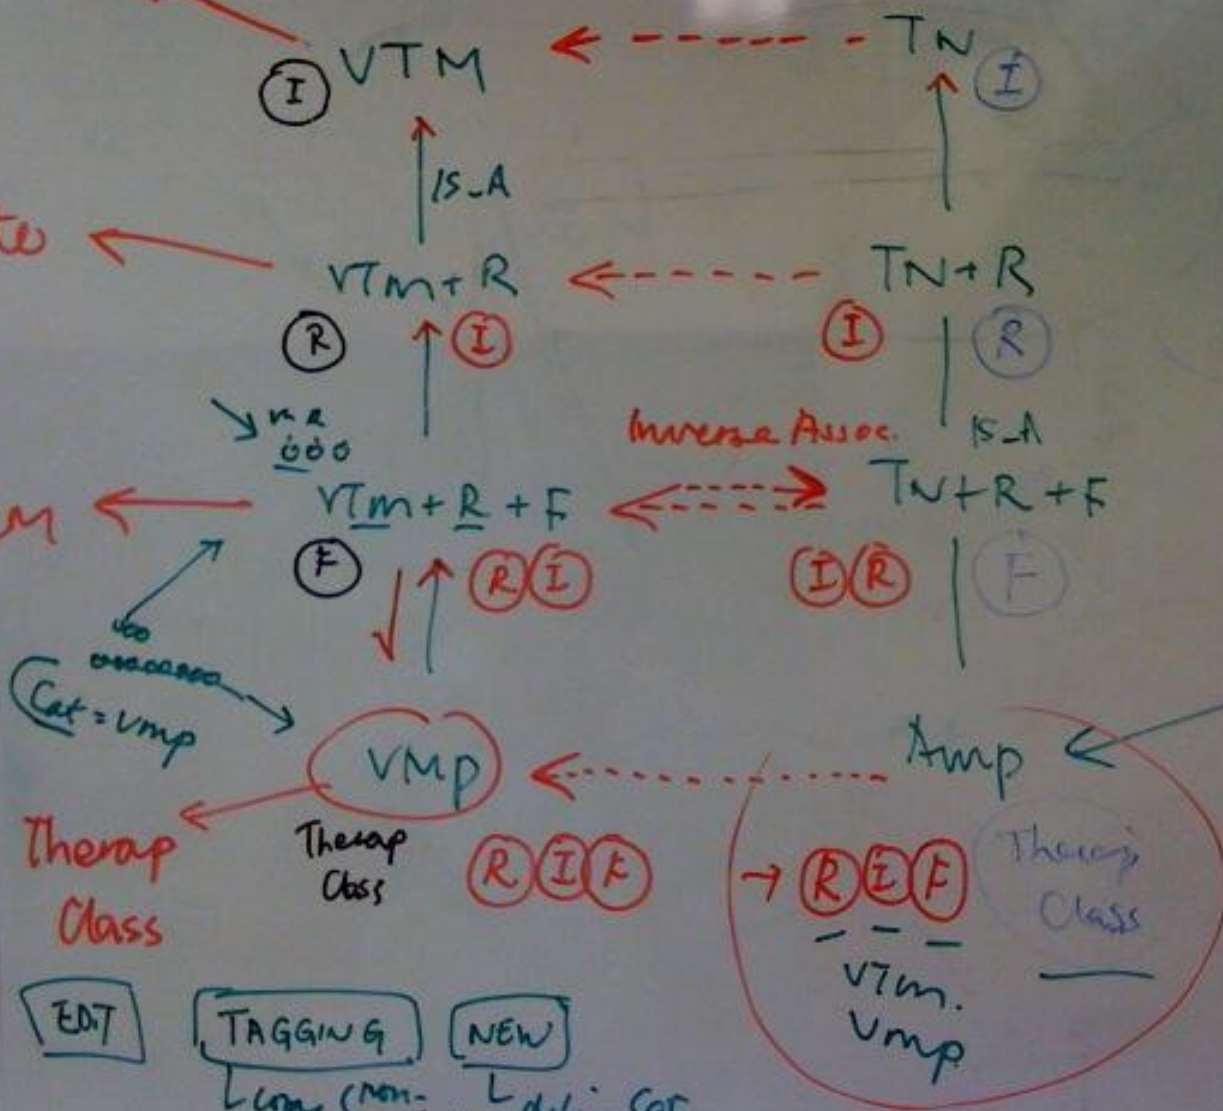 VTM TN
I I
IS_A
VTM+R TN+R
R I I R
Inverse Assoc. IS_A
VTM+R+F TN+R+F
F R I I R F
Cat = VMP
VMP AMP
Therap Class
Therap Class
R I F
→ R I F
Therap Class
VTM.
VMP
EDIT TAGGING NEW